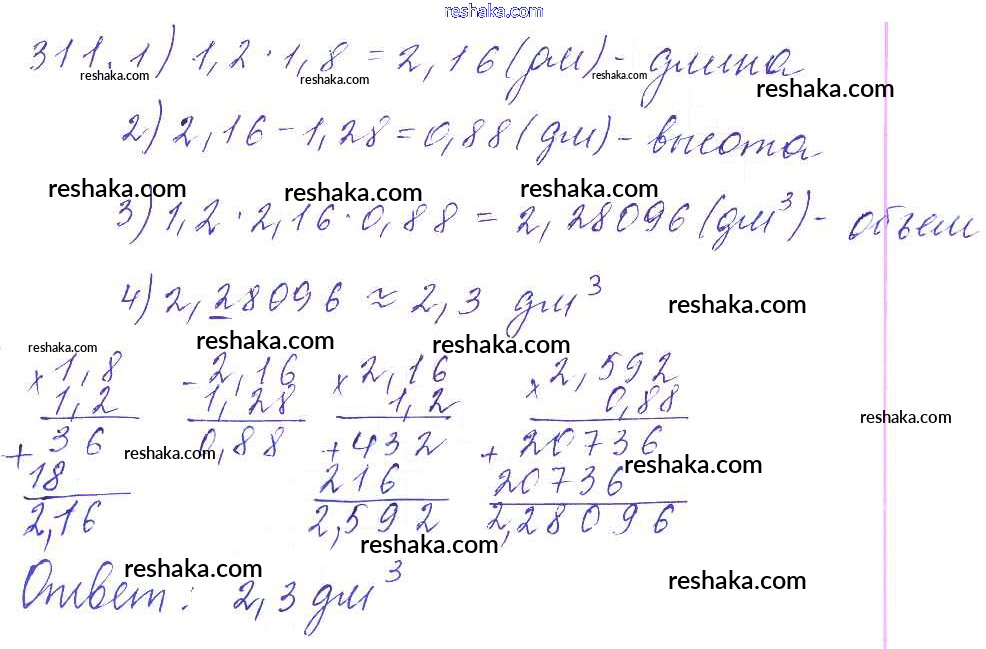 reshaka.com
311. 1) 1,2 · 1,8 = 2,16 (дм) - длина
reshaka.com reshaka.com reshaka.com reshaka.com
2) 2,16 - 1,28 = 0,88 (дм) - высота
reshaka.com reshaka.com reshaka.com
3) 1,2 · 2,16 · 0,88 = 2,28096 (дм³) - объем
4) 2,28096 ≈ 2,3 дм³
reshaka.com
reshaka.com reshaka.com reshaka.com
× 1,8 - 2,16 × 2,16 × 2,592
1,2 1,28 1,2 0,88
reshaka.com
+ 36 0,88 + 432 + 20736
reshaka.com reshaka.com
18 216 20736
2,16 2,592 2,28096
reshaka.com
reshaka.com reshaka.com
Ответ: 2,3 дм³